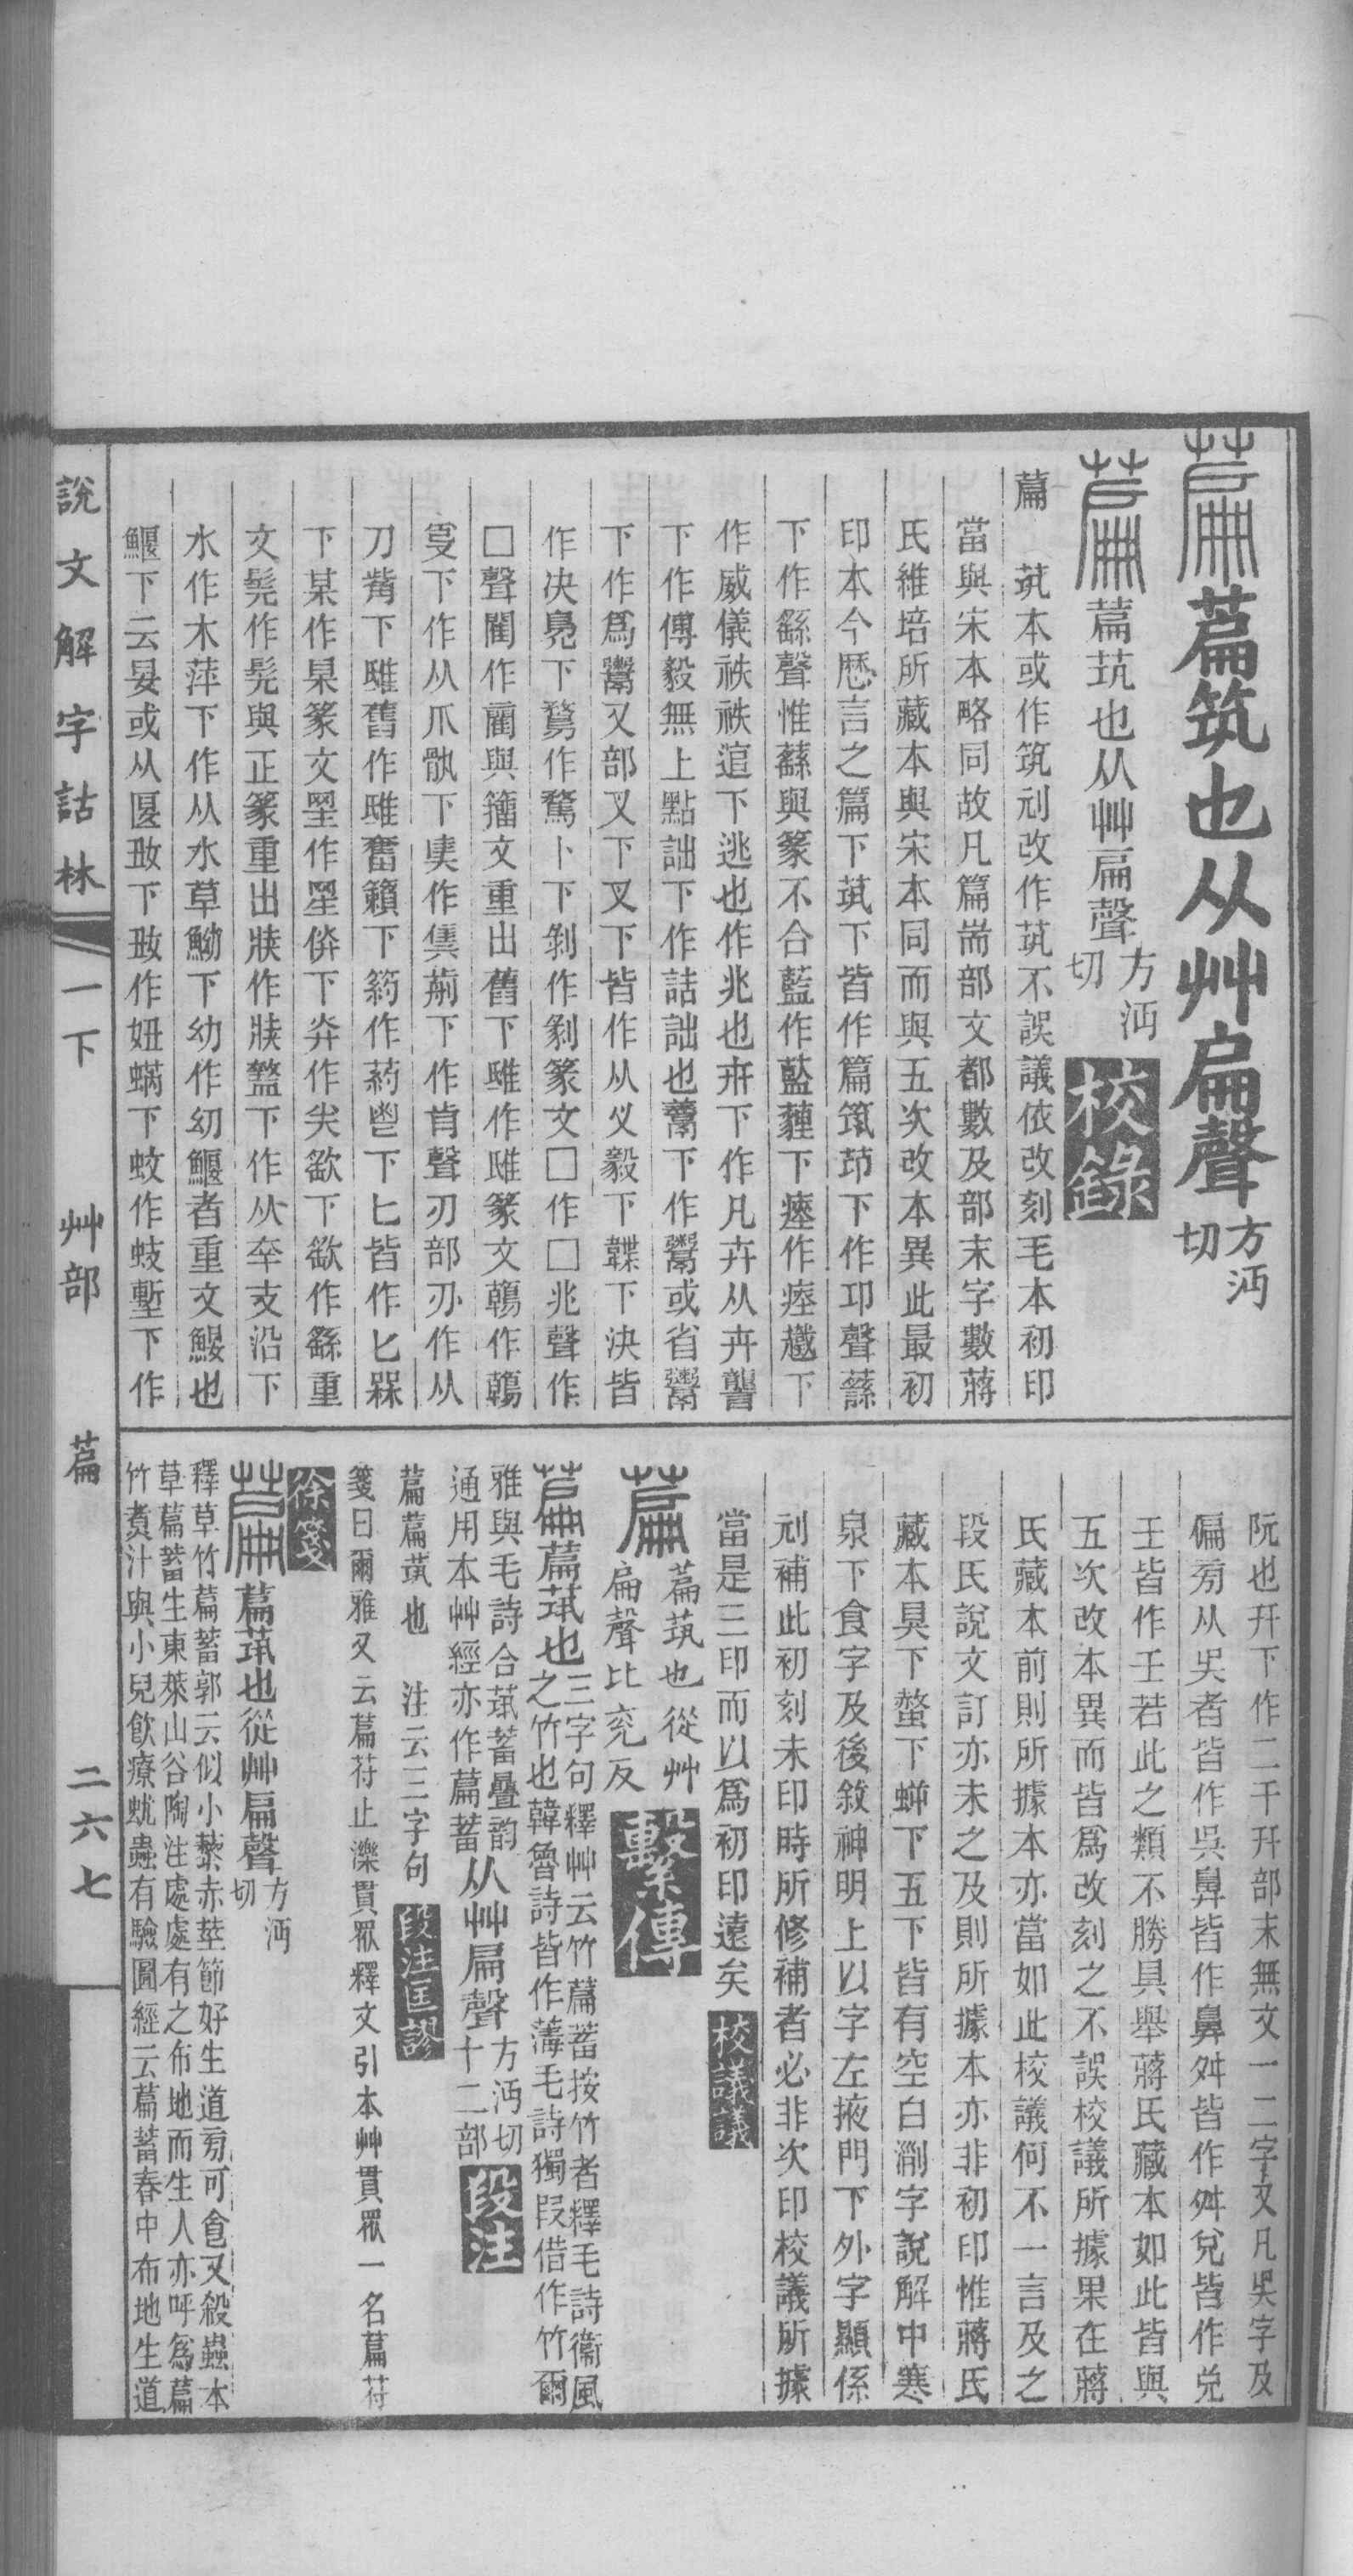 萹筑也从艸扁聲方沔切
萹茿也从艸扁聲方沔切 校錄
萹 茿本或作筑剜改作茿不誤議依改刻毛本初印
當與宋本略同故凡篇耑部文都數及部末字數蔣
氏維培所藏本與宋本同而與五次改本異此最初
印本今歷言之篇下茿下皆作篇筑茚下作卭聲蘇
下作䌛聲惟蘇與篆不合藍作藍薶下瘞作瘞
作威儀祑祑逭下逃也作兆也卉下作凡卉从卉
下作傅毅無上點詘下作詰詘也下作鬻或省
下作爲鬻又部叉下叉下皆作从义毅下下決皆
作決下鶩作騖卜下剝作剝篆文囗作囗兆聲作
囗聲閵作與籀文重出舊下雖作雎篆文鶾作鶾
下作从爪執下作荊下作肯聲刃部刅作从
刀觜下雖舊作雎奮籟下箹作葯鬯下匕皆作匕槑
下某作杲篆文壘作星下灷作尖欲下欲作䌛重
文髡作髡與正篆重出牋作牋盭下作从卒支沿下
水作木萍下作从水草下幼作幻鰋者重文鰋也
鰋下云妟或从匽下作妞蝸下蚊作蚑塹下作
阮也幵下作二干幵部末無文一二字又凡㕦字及
偏㫄从㕦者皆作吳鼻皆作鼻舛皆作舛兌皆作兌
王皆作王若此之類不勝具舉蔣氏藏本如此皆與
五次改本異而皆爲改刻之不誤校議所據果在蔣
氏藏本前則所據本亦當如此校議何不一言及之
段氏說文訂亦未之及則所據本亦非初印惟蔣氏
藏本昊下螯下蛘下五下皆有空白渻字說解中寒
泉下食字及後敘神明上以字左掖門下外字顯係
剜補此初刻未印時所修補者必非次印校議所據
當是三印而以爲初印遠矣 校議議
萹茿也從艸扁聲比兖反 繫傳
萹茿也三字句釋艸云竹萹蓄按竹者釋毛詩衞風之竹也韓魯詩皆作薄毛詩獨叚借作竹爾
雅與毛詩合茿蓄疊韵通用本艸經亦作萹蓄从艸扁聲方沔切十二部 段注
萹萹茿也 注云三字句 段注匡謬
箋曰爾雅又云萹苻止濼貫眾釋文引本艸貫眾一名萹苻
徐箋
萹茿也從艸扁聲方沔切
釋草竹萹蓄郭云似小藜赤莖節好生道㫄可食又殺蟲本
草萹蓄生東萊山谷陶注處處有之布地而生人亦呼爲萹
竹煑汁與小兒飲療蚘蟲有驗圖經云萹蓄春中布地生道
說文解字詁林 一下 艸部 萹 二六七